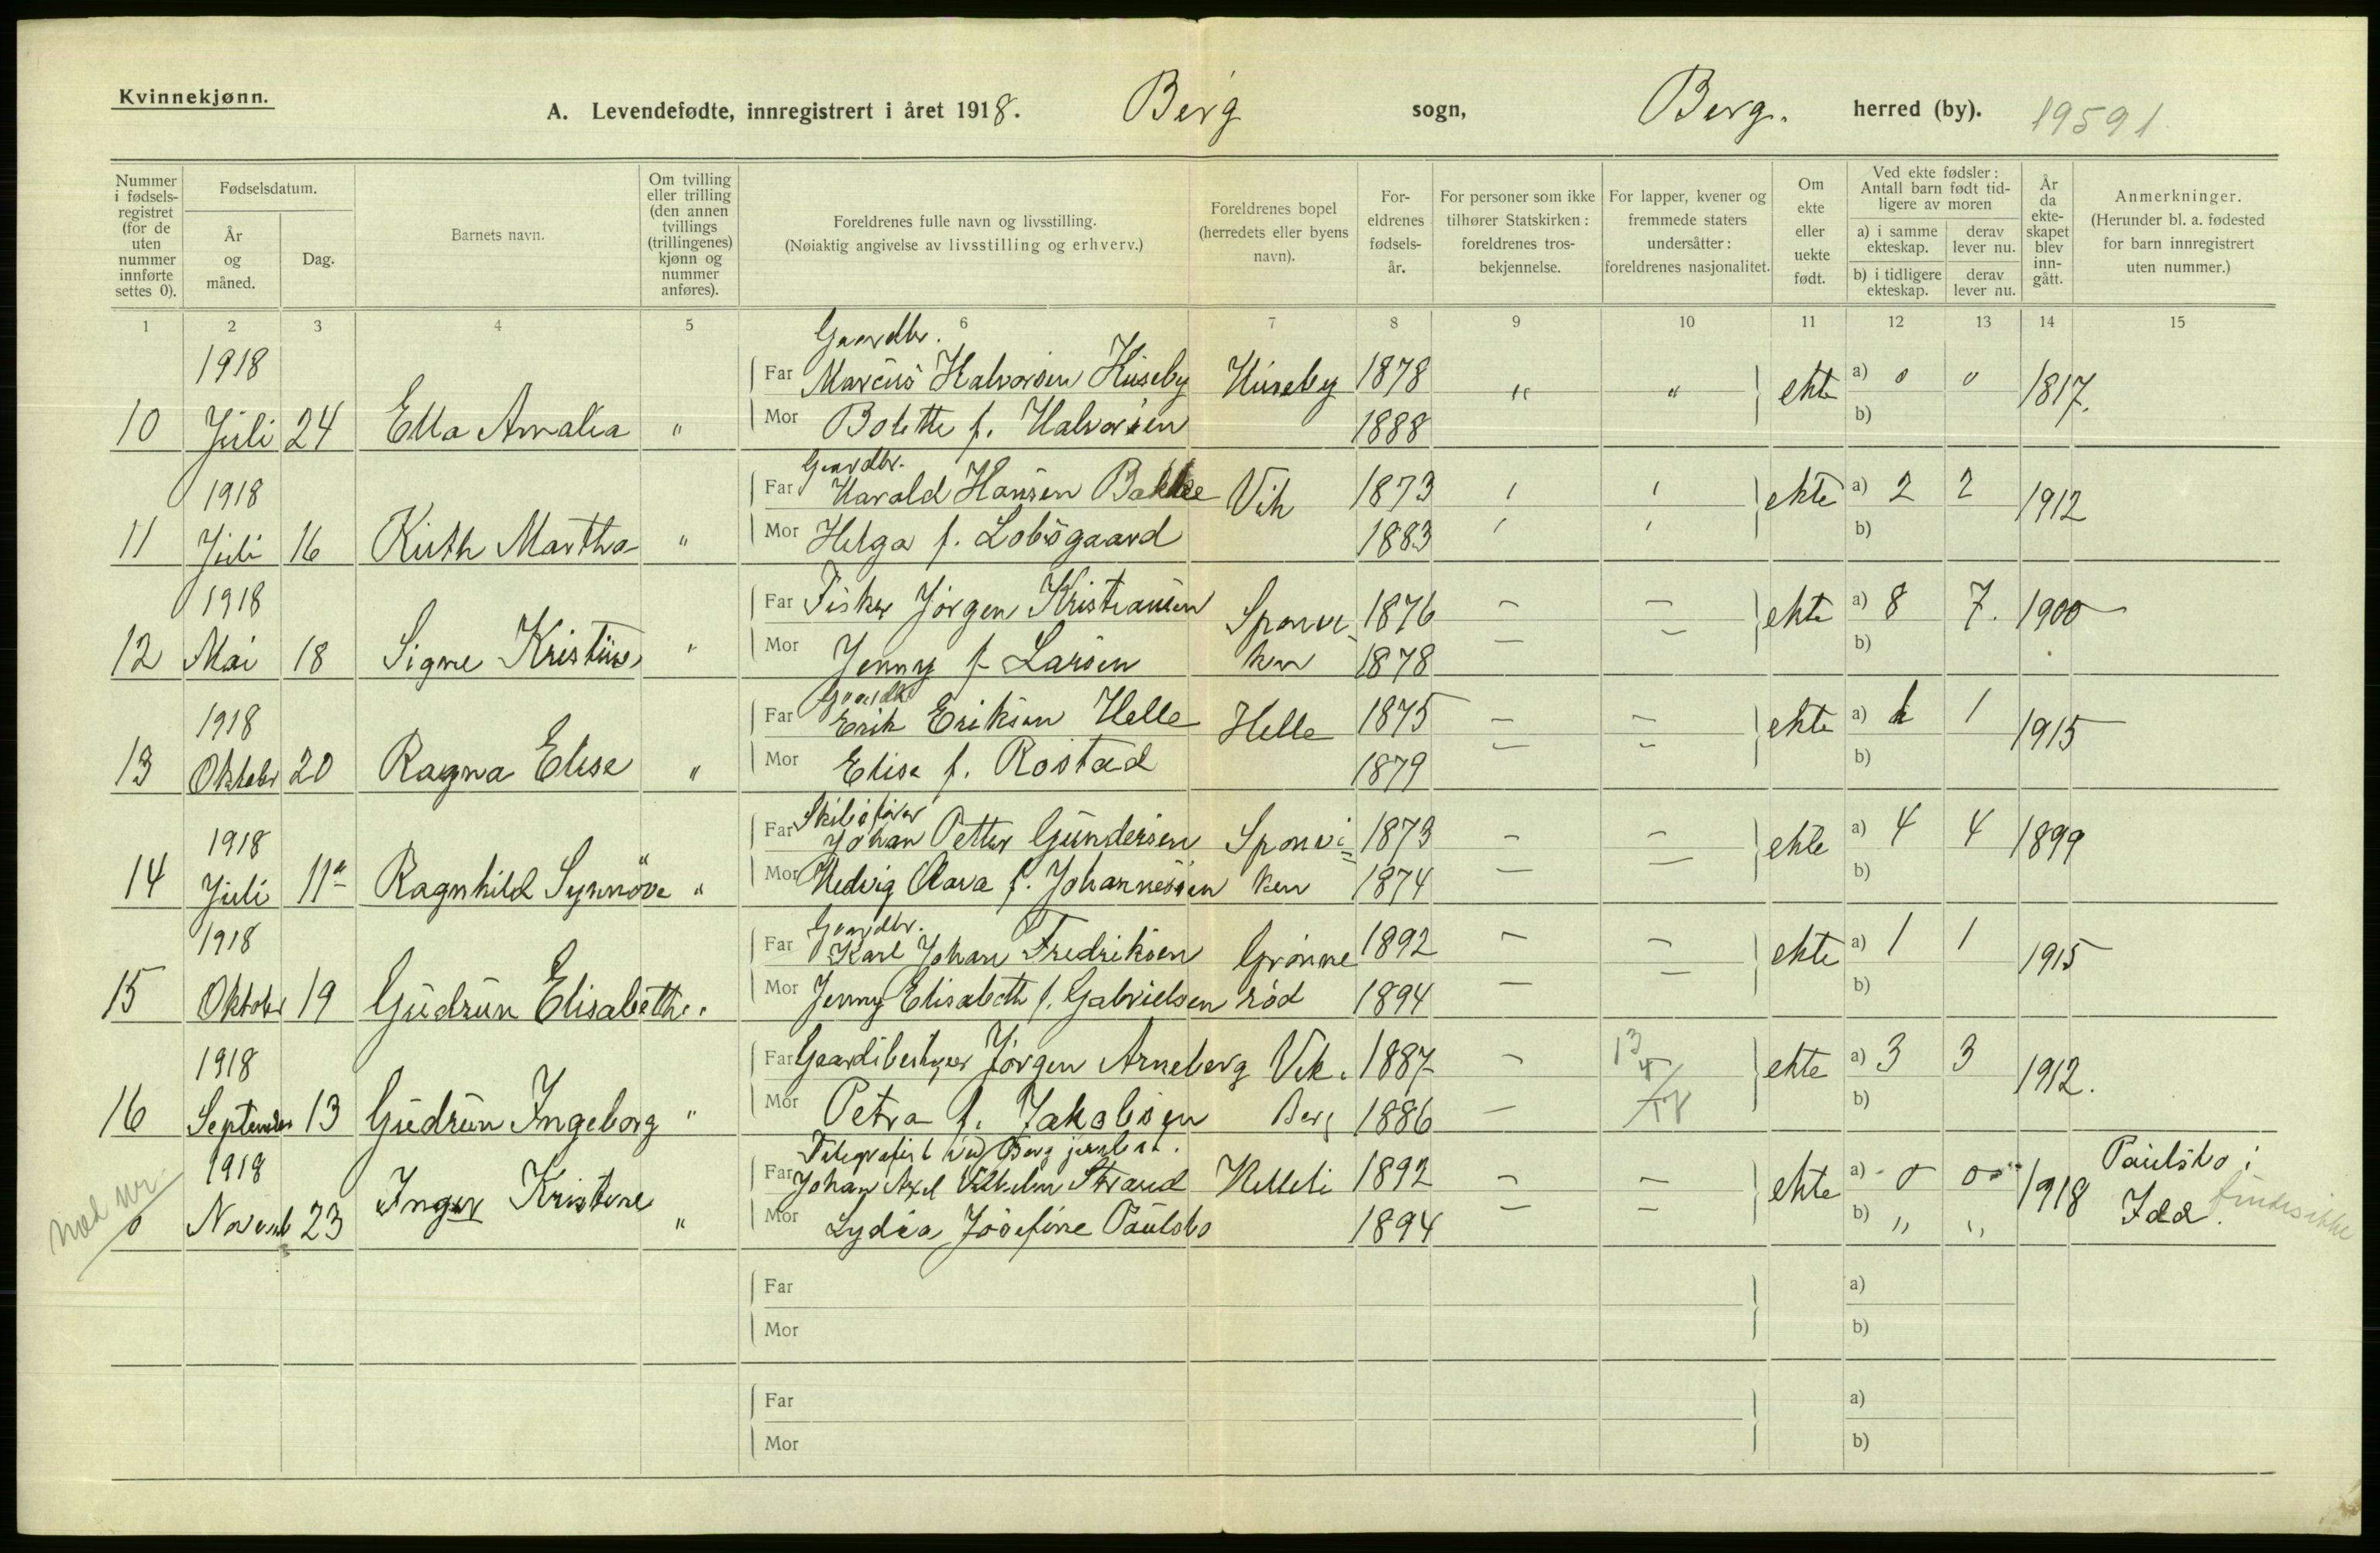 Kvinnekjønn.
A. Levendefødte, innregistrert i året 1918. Berg sogn, Berg. herred (by). 19591
Nummer i fødselsregistret (for de uten nummer innførte settes 0).
Fødselsdatum.
År og måned.
Dag.
Barnets navn.
Om tvilling eller trilling (den annen tvillings (trillingenes) kjønn og nummer anføres).
Foreldrenes fulle navn og livsstilling.
(Nøiaktig angivelse av livsstilling og erhverv.)
Foreldrenes bopel (herredets eller byens navn).
Foreldrenes fødselsår.
For personer som ikke tilhører Statskirken: foreldrenes trosbekjennelse.
For lapper, kvener og fremmede staters undersåtter: foreldrenes nasjonalitet.
Om ekte eller uekte født.
Ved ekte fødsler: Antall barn født tidligere av moren
a) i samme ekteskap. derav lever nu.
b) i tidligere ekteskap. derav lever nu.
År da ekteskapet blev inngått.
Anmerkninger.
(Herunder bl. a. fødested for barn innregistrert uten nummer.)
1 2 3 4 5 6 7 8 9 10 11 12 13 14 15
Gaardbr.
1918 Far Marcus Halvorsen Huseby Huseby 1878 " " ekte a) 0 0 1817.
10 Juli 24 Ella Amalia " Mor Bolette f. Halvorsen 1888 b)
Gaardbr.
1918 Far Harald Hansen Bakke Vik 1873 ekte a) 2 2 1912
11 Juli 16 Ruth Martha " Mor Helga f. Lobsgaard 1883 b)
1918 Far Fisker Jörgen Kristiansen Sponvi 1876 — — ekte a) 8 7. 1900
12 Mai 18 Signe Kristine " Mor Jenny f. Larsen ken 1878 — — b)
Gaardbr
1918 Far Erik Eriksen Helle Helle 1875 — — ekte a) 1 1915
13 Oktober 20 Ragna Elise " Mor Elise f. Rostad 1879 — — b)
Skibsförer
1918 Far Johan Petter Gundersen Sponvi= 1873 — — ekte a) 4 4 1899
14 Juli 11 Ragnhild Synnöve " Mor Hedvig Olava f. Johannessen ken 1874 — — b)
Gaardbr.
1918 Far Karl Johan Fredriksen Grönne 1892 — — ekte a) 1 1 1915
15 Oktober 19 Gudrun Elisabeth " Mor Jenny Elisabeth f. Gabrielsen röd 1894 — — b)
1918 Far Gaardsbestyrer Jörgen Arneberg Vik. 1887 — 13 ekte a) 3 3 1912.
16 September 13 Gudrun Ingeborg " Mor Petra f. Jakobsen Berg 1886 — b)
Telegrafist ved Berg jernbst.
1918 Far Johan Axel Vilhelm Strand Helleli 1892 — — ekte a) 0 0 1918 Paulsbo i
0 Novemb 23 Inger Kristine " Mor Lydia Josefine Paulsbo 1894 — — b) " " Idd. findes ikke
Far a)
Mor b)
Far a)
Mor b)